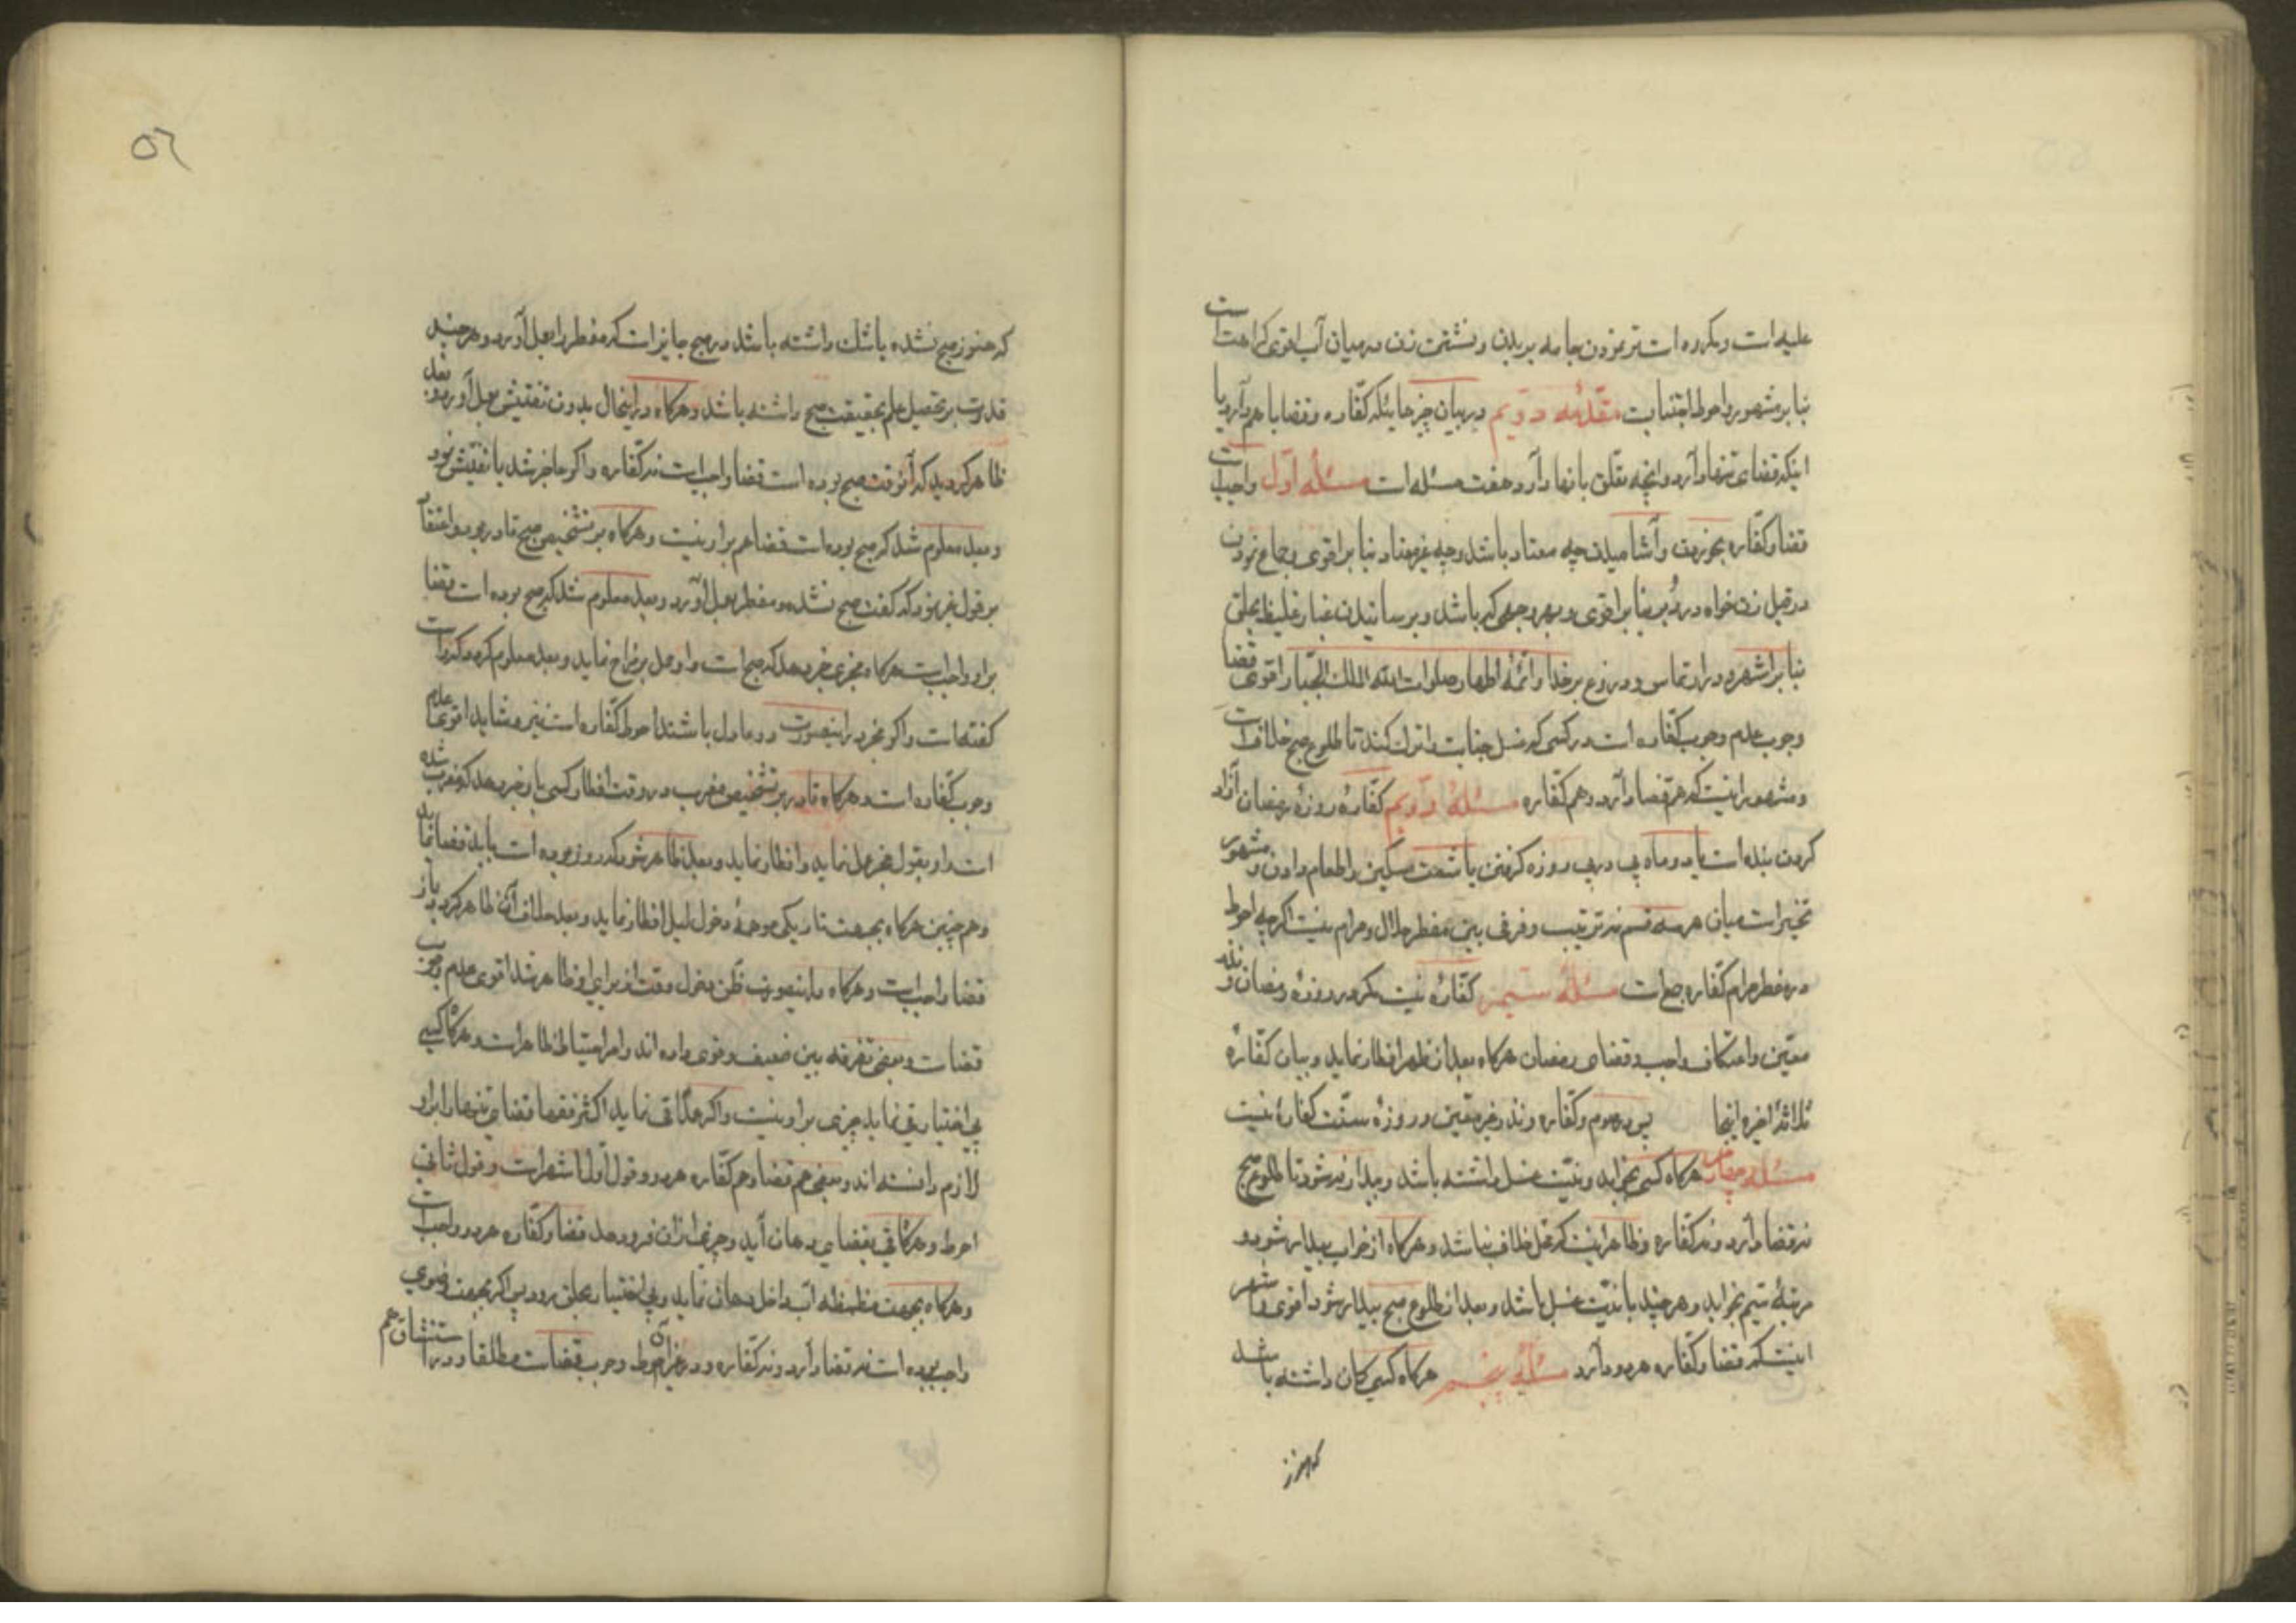 علیه است و مکروه است تر نمودن جامه بر بدن و نشستن زن در میان آب اقوی کراهت است
بنا بر مشهور و احوط اجتناب است مقدمه دویم در بیان چیزهائیکه کفاره و قضا با هم دارد یا
اینکه قضای تنها دارد و آنچه تعلق بانها دارد و هفت مسئله است مسئله اول واجب است
قضا و کفاره بخوردن و آشامیدن چه معتاد باشد و چه غیر معتاد بنا بر اقوی و جماع نمودن
در قبل زن خواه در دُبر بنا بر اقوی و بهر وجهی که باشد و برسانیدن غبار غلیظ بحلق
بنا بر اشهر و در ارتماس و دروغ بر خدا و ائمه اطهار صلوات الله الملک الجبار اقوی قضا
وجوب عدم وجوب کفاره است در کسی که غسل جنابت را ترک کند تا طلوع صبح خلاف است
و مشهور اینست که هم قضا دارد و هم کفاره مسئلهٔ دویم کفارهٔ روزهٔ رمضان آزاد
کردن بنده است یا دو ماه پی در پی روزه گرفتن یا شصت مسکین را طعام دادن و مشهور
تخییر است میان هر سه قسم نه ترتیب و فرقی بین مفطر حلال و حرام نیست اگر چه احوط
در مفطر حرام کفاره جمع است مسئلهٔ سیم کفارهٔ نیست مگر در روزهٔ رمضان و نذر
معین و اعتکاف واجب و قضای رمضان هرگاه بعد از ظهر افطار نماید و بیان کفارهٔ
ثلاثهٔ اخیره اینجا پس در صوم و کفاره و نذر غیر معین و روزهٔ سنت کفارهٔ نیست
مسئله چهارم هرگاه کسی بخوابد و نیت غسل داشته باشد و بیدار نشود تا طلوع صبح
نه قضا دارد و نه کفاره و ظاهر اینست که محل خلاف نباشد و هرگاه از خواب بیدار شود و
مرتبهٔ سیم بخوابد و هر چند با نیت غسل باشد و بعد از طلوع صبح بیدار شود اقوی و اشهر
اینست که قضا و کفاره هر دو دارد مسئلهٔ پنجم هرگاه کسی گمان داشته باشد
که هنوز
۵۶
که هنوز صبح نشده یا شک داشته باشد در صبح جایز است که مفطر را بعمل آورد و هر چند
قدرت بر تحصیل علم بحقیقت صبح داشته باشد و هرگاه در اینحال بدون تفتیش بعمل آورد و بعد
ظاهر گردید که آنوقت صبح بوده است قضا واجب است نه کفاره و اگر عاجز شد یا تفتیش نمود
و بعد معلوم شد که صبح بوده است قضا هم بر او نیست و هرگاه بر تشخیص صبح قادر بود و اعتقاد
بر قول غیر نمود که گفت صبح نشده و مفطر بعمل آورد و بعد معلوم شد که صبح بوده است قضا
بر او واجب است هرگاه مخبری خبر دهد که صبح است و او حمل بر مزاح نماید و بعد معلوم کرد که راست
گفته است و اگر مخبر در اینصورت دو عادل باشند احوط کفاره است نیز و شاید اقوی عدم
وجوب کفاره است و هرگاه قادر بر تشخیص مغرب در وقت افطار کسی باو خبر دهد که مغرب شده
است و او بقول مخبر عمل نماید و افطار نماید و بعد ظاهر شود که روز بوده است باید قضا نماید
و هم چنین هرگاه بجهت تاریکی موجهٔ دخول لیل افطار نماید و بعد خلاف آن ظاهر گردد باز
قضا واجب است و هرگاه در اینصورت ظن دخول وقت از برای او ظاهر شد اقوی عدم وجوب
قضاست و بعضی تفرقه بین ضعیف و قوی داده اند و امر احتیاط ظاهر است و هرگاه کسی
بی اختیار قی نماید چیزی بر او نیست و اگر عمداً قی نماید اکثر فقها قضای تنها را بر او
لازم دانسته اند و بعضی هم قضا و هم کفاره هر دو و قول اول اشهر است و قول ثانی
احوط و هرگاه قی بفضای دهان آید و چیزی از آن فرو دهد قضا و کفاره هر دو واجب است
و هرگاه بجهت مضمضه آب داخل دهان نماید و بی اختیار بحلق رود پس اگر بجهت وضوی
واجب بوده است نه قضا دارد و نه کفاره و در غیر آن احوط وجوب قضاست مطلقا و در استنشاق هم